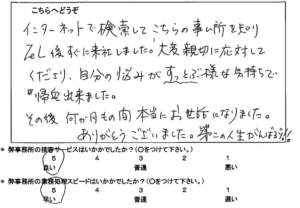 こちらへどうぞ
インターネットで検索してこちらの事ム所を知り
TEL後すぐに来社しました。大変親切に応対して
くださり、自分の悩みがすっとぶ様な気持ちで
帰宅出来ました。
その後何か月もの間本当にお世話になりました。
ありがとうございました。第二の人生がんばるゾ!!
* 弊事務所の接客サービスはいかがでしたか?（○をつけて下さい。）
5 4 3 2 1
良い 普通 悪い
* 弊事務所の業務処理スピードはいかがでしたか?（○をつけて下さい。）
5 4 3 2 1
早い 普通 遅い